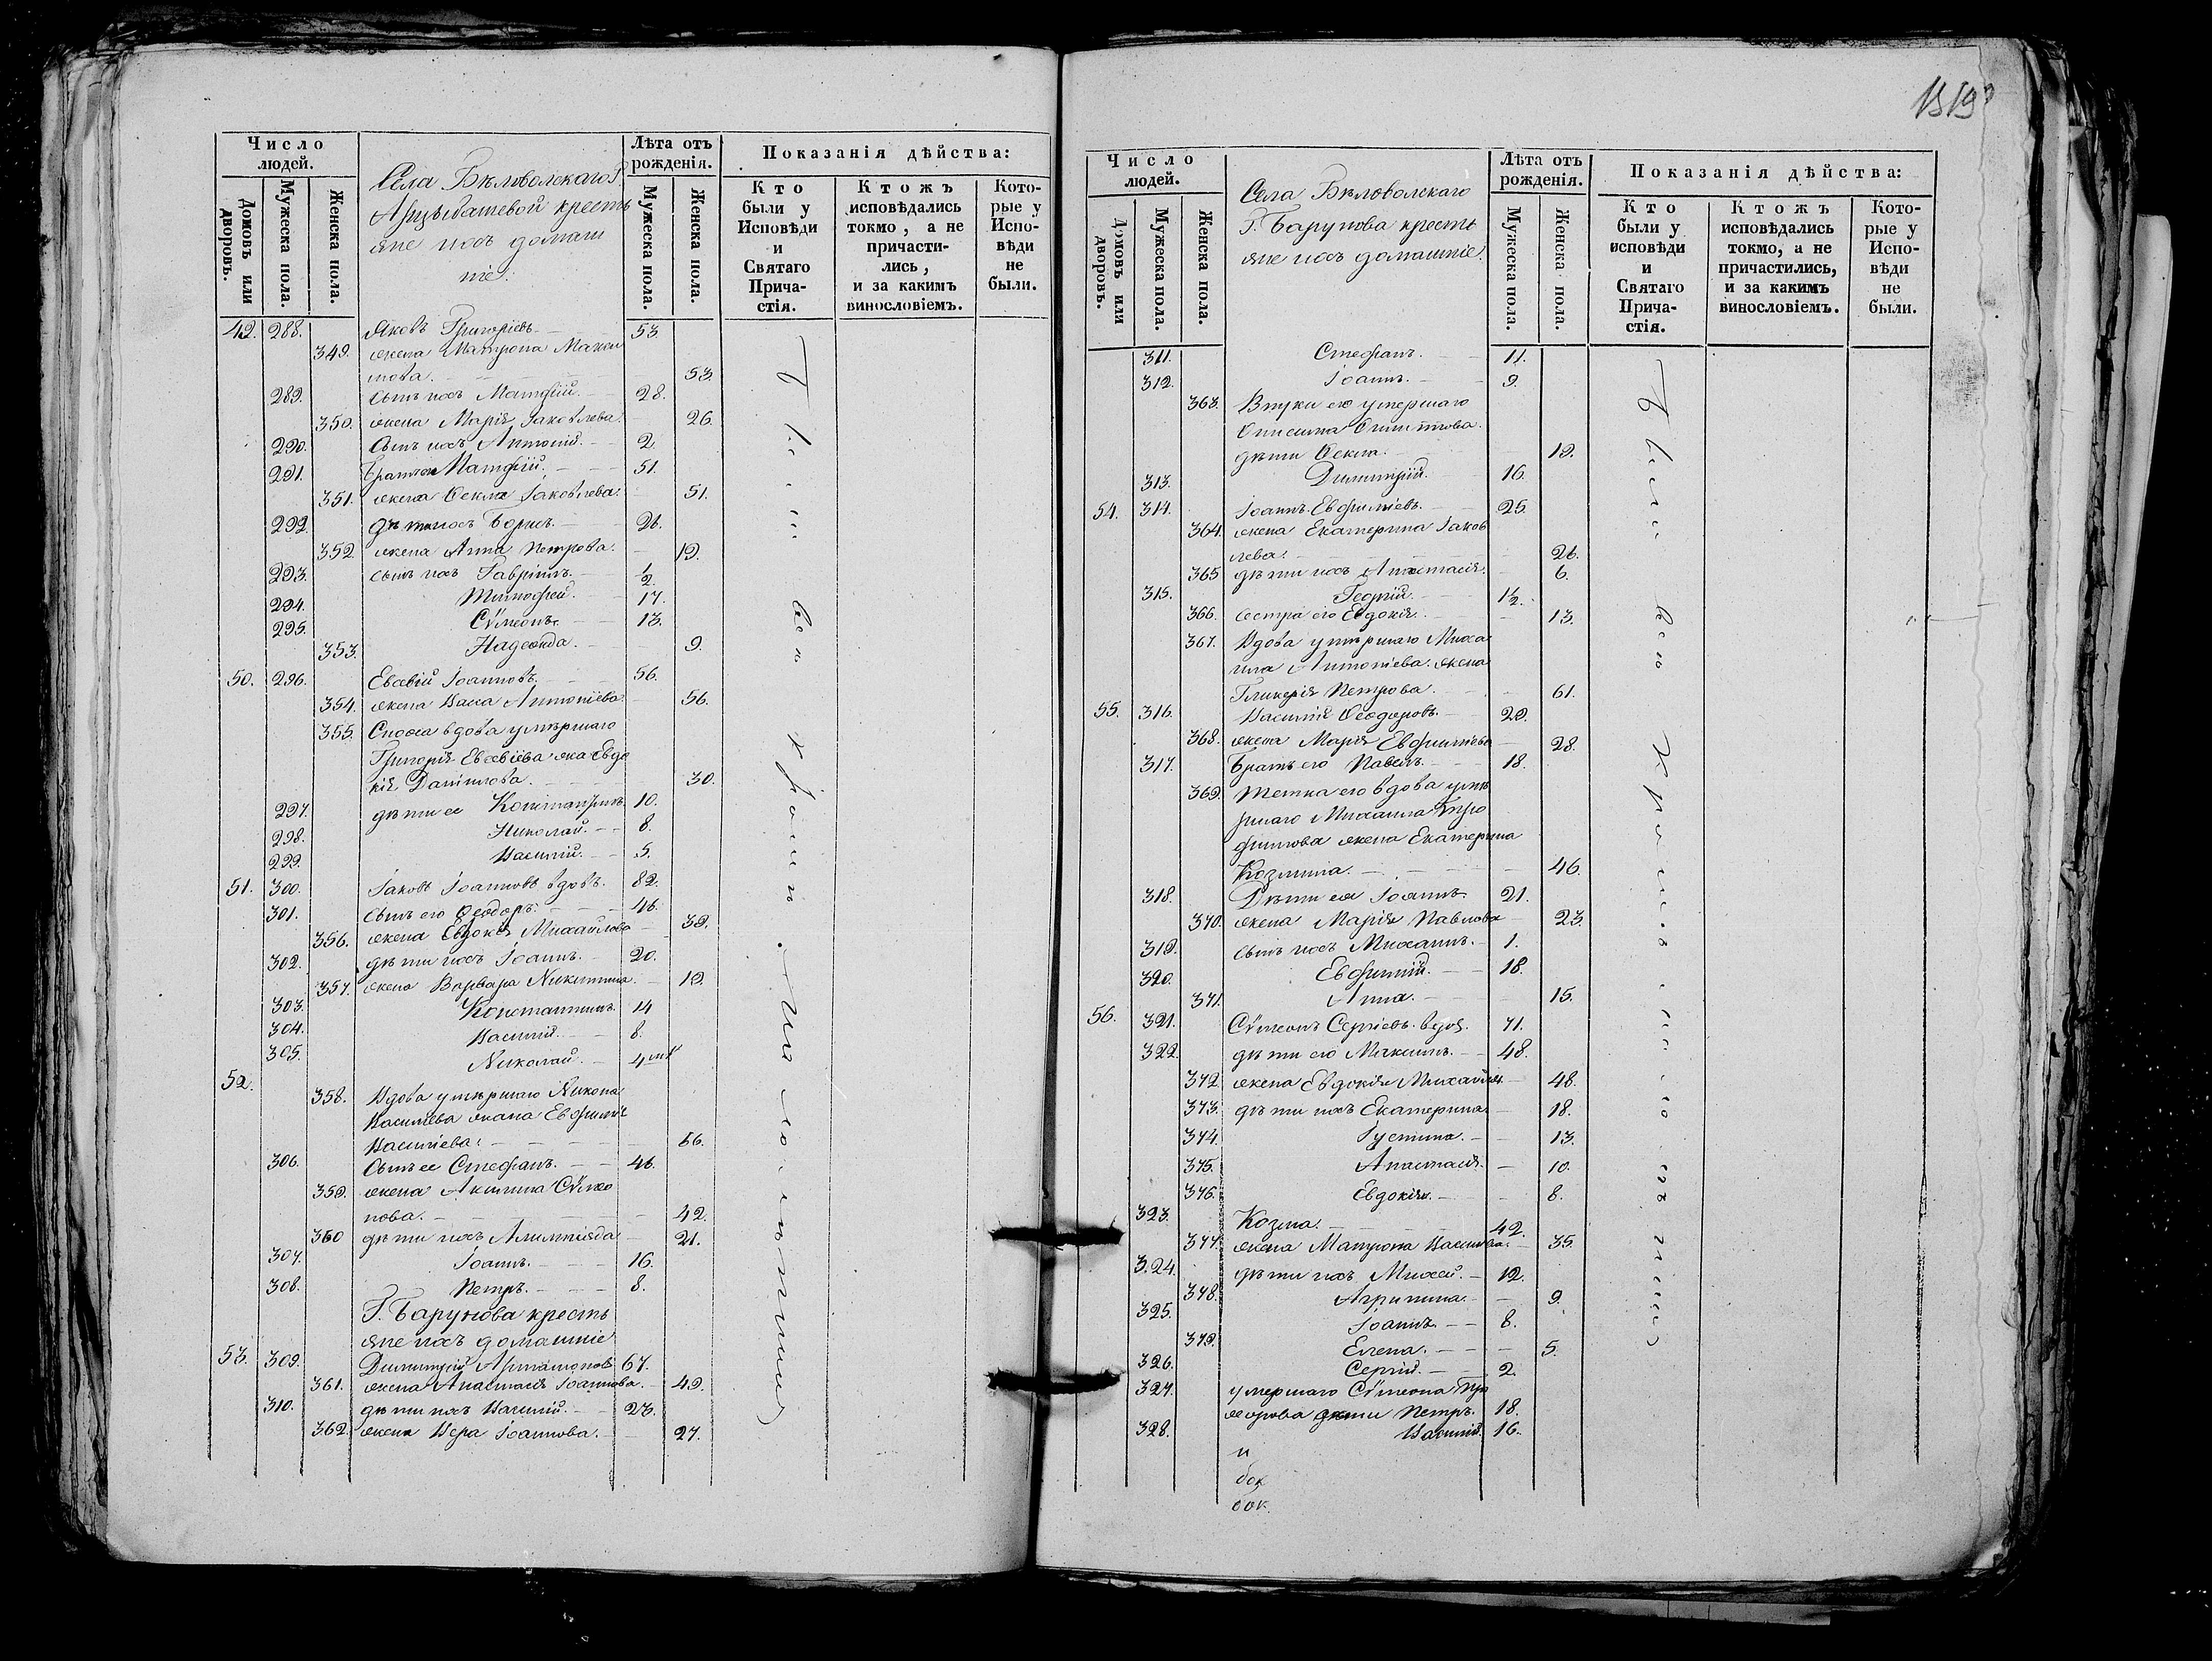 Число людей.
Домовъ или дворовъ.
Мужеска пола.
Женска пола.
Села Бѣловолскаго Г.
Арцыбашевой кресть
яне ихъ домаш
ніе:
Лѣта отъ рожденія.
Мужеска пола.
Женска пола.
Показанія дѣйства:
Кто были у Исповѣди и Святаго Причастія.
Ктожъ исповѣдались токмо, а не причастились, и за какимъ винословіемъ.
Которые у Исповѣди не были.
42. 288. Яковъ Григорьевъ 53.
349. жена Матрона Макси
мова. 53.
289. Сынъ ихъ Матфій. 28.
350. жена Марія Іаковлева. 26.
290. Сынъ ихъ Антоній. 2.
291. Братъ Матфій. 51.
351. жена Ѳекла Іаковлева. 51.
292. дѣти ихъ Борисъ. 21.
352. жена Анна Петрова. 19.
293. сынъ ихъ Гавріилъ. 1/2.
294. Тимофей. 17.
295. Сѵмеонъ. 13.
353. Надежда. 9.
50. 296. Евсевій Іоанновъ. 56.
354. жена Васа Антоніева. 56.
355. Сноха вдова умѣршаго
Григорія Евсевіева жена Евдо
кія Даніилова. 30.
297. дѣти ее Константинъ. 10.
298. Николай. 8.
299. Василій. 5.
51. 300. Іаковъ Іоанновъ вдовъ. 82.
301. сынъ его Ѳеодоръ. 46.
356. жена Евдокія Михайлова 39.
302. дѣти ихъ Іоаннъ. 20.
357. жена Варвара Никитина. 19.
303. Константинъ. 14
304. Василій. 8.
305. Николай. 4
52.
358. Вдова умѣршаго Никона
Василіева жена Евфимія
Василіева. 66.
306. Сынъ ее Стефанъ. 46.
359. жена Акилина Сѵмео
нова. 42.
360 дѣти ихъ Алимпіада 21.
307. Іоаннъ. 16.
308. Петръ. 8.
Г. Барунова кресть
яне ихъ домашніе
53. 309. Димитрій Артамоновъ 67.
361. жена Анастасія Іоаннова. 49.
310. дѣти ихъ Василій. 23.
362. жена Вера Іоаннова. 27.
Число людей.
Домовъ или дворовъ.
Мужеска пола.
Женска пола.
Села Бѣловолскаго
Г. Барунова кресть
яне ихъ домашніе.
Лѣта отъ рожденія.
Мужеска пола.
Женска пола.
Показанія дѣйства:
Кто были у исповѣди и Святаго Причастія.
Ктожъ исповѣдались токмо, а не причастились, и за какимъ винословіемъ.
Которые у Исповѣди не были.
311. Стефанъ. 11.
312. Іоаннъ. 9.
363. Внуки его умершаго
дѣти Ѳекла. 19.
313. Димитрій. 16.
54. 314. Іоаннъ Евфиміевъ. 25.
364. жена Екатерина Іаков
лева. 26.
365 дѣти ихъ Анастасія. 6.
315. Георгій. 1/2.
366. сестра его Евдокія. 13.
367. Вдова умѣршаго Миха
ила Антоніева жена
Гликерія Петрова. 61.
55. 316. Василій Ѳеодоровъ. 29.
368. жена Марія Евфиміева 28.
317. Братъ его Павелъ. 18.
369. Тетка его вдова умѣ
ршаго Михаила Тро
фимова жена Екатерина
Козмина. 46.
318. Дѣти ея Іоаннъ. 21.
370. жена Марія Павлова 23.
319. сынъ ихъ Михаилъ. 1.
320. Евфимій. 18.
371. Анна. 15.
56. 321. Сѵмеонъ Сергіевъ вдов. 71.
322. дѣти его Максимъ. 48.
372 жена Евдокія Михайлов. 48.
373. дѣти ихъ Екатерина 18.
374. Іустина. 13.
375. Анастасія. 10.
376. Евдокія. 8.
323. Козма. 42.
377. жена Матрона Василіева. 35.
324. дѣти ихъ Михей. 12.
378. Агрипина. 9.
325. Іоаннъ. 8.
379. Елена. 5.
326. Сергій. 2.
327. умершаго Сѵмеона
дѣти Петръ. 18.
328. Василій. 16.